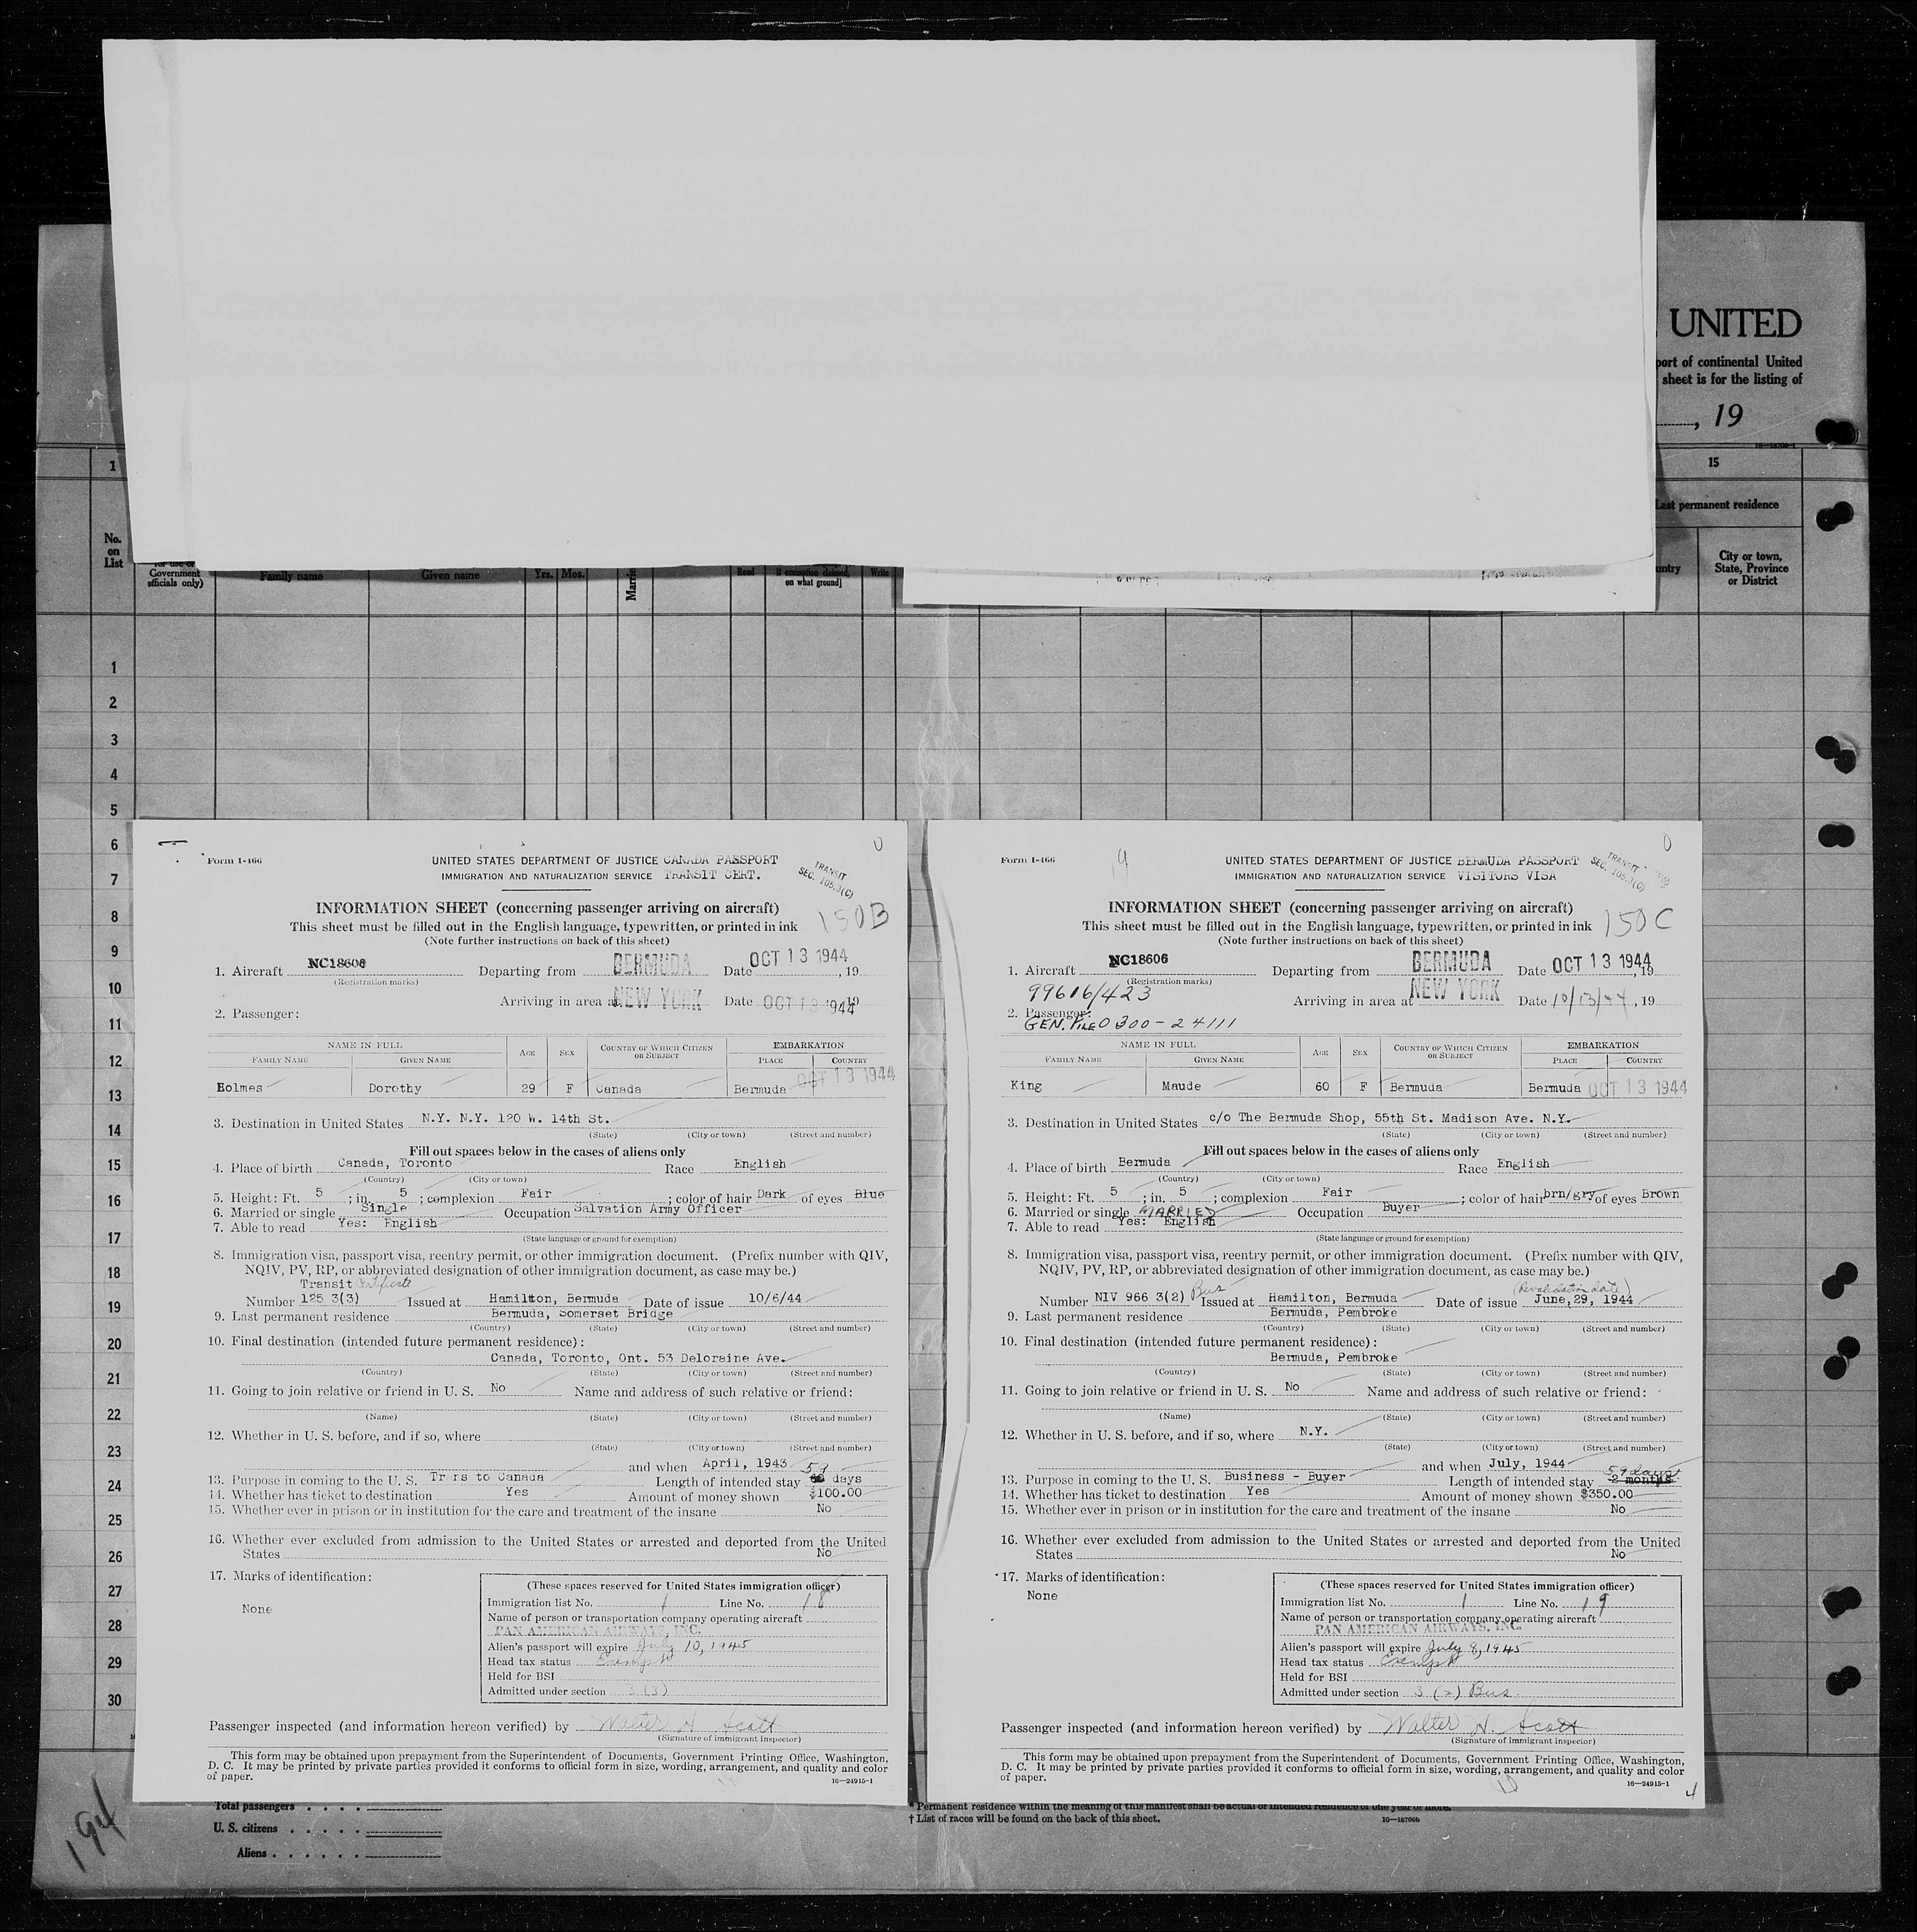 UNITED
port of continental United
sheet is for the listing of
, 19
16—18709-1
1
15
Last permanent residence
No.
on
List
for use of
Government
officials only)
Family name
Given name
Yrs.
Mos.
Marrie
Read
if exemption claimed,
on what ground]
Write
untry
City or town,
State, Province
or District
1
2
3
4
5
6
7
8
9
10
11
12
13
14
15
16
17
18
19
20
21
22
23
24
25
26
27
28
29
30
Form I-466
UNITED STATES DEPARTMENT OF JUSTICE CANADA PASSPORT
IMMIGRATION AND NATURALIZATION SERVICE TRANSIT CERT.
TRANSIT
SEC. 105.3(C)
INFORMATION SHEET (concerning passenger arriving on aircraft)
150B
This sheet must be filled out in the English language, typewritten, or printed in ink
(Note further instructions on back of this sheet)
1. Aircraft NC18606 Departing from BERMUDA Date OCT 13 1944, 19
(Registration marks)
Arriving in area at NEW YORK Date OCT 13 1944 19
2. Passenger:
NAME IN FULL
AGE
SEX
COUNTRY OF WHICH CITIZEN OR SUBJECT
EMBARKATION
FAMILY NAME
GIVEN NAME
PLACE
COUNTRY
Eolmes Dorothy 29 F Canada Bermuda OCT 13 1944
3. Destination in United States N.Y. N.Y. 120 W. 14th St.
(State) (City or town) (Street and number)
Fill out spaces below in the cases of aliens only
4. Place of birth Canada, Toronto Race English
(Country) (City or town)
5. Height: Ft. 5 ; in. 5 ; complexion Fair ; color of hair Dark of eyes Blue
6. Married or single Single Occupation Salvation Army Officer
7. Able to read Yes: English
(State language or ground for exemption)
8. Immigration visa, passport visa, reentry permit, or other immigration document. (Prefix number with QIV,
NQIV, PV, RP, or abbreviated designation of other immigration document, as case may be.)
Transit Certificate
Number 125 3(3) Issued at Hamilton, Bermuda Date of issue 10/6/44
9. Last permanent residence Bermuda, Somerset Bridge
(Country) (State) (City or town) (Street and number)
10. Final destination (intended future permanent residence):
Canada, Toronto, Ont. 53 Deloraine Ave.
(Country) (State) (City or town) (Street and number)
11. Going to join relative or friend in U. S. No Name and address of such relative or friend:
(Name) (State) (City or town) (Street and number)
12. Whether in U. S. before, and if so, where
(State) (City or town) (Street and number)
and when April, 1943
13. Purpose in coming to the U. S. Trans to Canada Length of intended stay 59 days
14. Whether has ticket to destination Yes Amount of money shown $100.00
15. Whether ever in prison or in institution for the care and treatment of the insane No
16. Whether ever excluded from admission to the United States or arrested and deported from the United
States No
17. Marks of identification:
None
(These spaces reserved for United States immigration officer)
Immigration list No. 1 Line No. 18
Name of person or transportation company operating aircraft
PAN AMERICAN AIRWAYS, INC.
Alien's passport will expire July 10, 1945
Head tax status Exempt
Held for BSI
Admitted under section 3 (3)
Passenger inspected (and information hereon verified) by Walter H. Scott
(Signature of immigrant inspector)
This form may be obtained upon prepayment from the Superintendent of Documents, Government Printing Office, Washington,
D. C. It may be printed by private parties provided it conforms to official form in size, wording, arrangement, and quality and color
of paper.
16—24915-1
Form I-466
UNITED STATES DEPARTMENT OF JUSTICE BERMUDA PASSPORT
IMMIGRATION AND NATURALIZATION SERVICE VISITORS VISA
TRANSIT
SEC. 105.3(C)
INFORMATION SHEET (concerning passenger arriving on aircraft)
150C
This sheet must be filled out in the English language, typewritten, or printed in ink
(Note further instructions on back of this sheet)
1. Aircraft NC18606 Departing from BERMUDA Date OCT 13 1944, 19
(Registration marks)
99616/423
Arriving in area at NEW YORK Date 10/13/44, 19
2. Passenger:
GEN. FILE 0300-24111
NAME IN FULL
AGE
SEX
COUNTRY OF WHICH CITIZEN OR SUBJECT
EMBARKATION
FAMILY NAME
GIVEN NAME
PLACE
COUNTRY
King Maude 60 F Bermuda Bermuda OCT 13 1944
3. Destination in United States c/o The Bermuda Shop, 55th St. Madison Ave. N.Y.
(State) (City or town) (Street and number)
Fill out spaces below in the cases of aliens only
4. Place of birth Bermuda Race English
(Country) (City or town)
5. Height: Ft. 5 ; in. 5 ; complexion Fair ; color of hair brn/gry of eyes Brown
6. Married or single MARRIED Occupation Buyer
7. Able to read Yes: English
(State language or ground for exemption)
8. Immigration visa, passport visa, reentry permit, or other immigration document. (Prefix number with QIV,
NQIV, PV, RP, or abbreviated designation of other immigration document, as case may be.)
(Revalidation date)
Number NIV 966 3(2) Bus Issued at Hamilton, Bermuda Date of issue June, 29, 1944
9. Last permanent residence Bermuda, Pembroke
(Country) (State) (City or town) (Street and number)
10. Final destination (intended future permanent residence):
Bermuda, Pembroke
(Country) (State) (City or town) (Street and number)
11. Going to join relative or friend in U. S. No Name and address of such relative or friend:
(Name) (State) (City or town) (Street and number)
12. Whether in U. S. before, and if so, where N.Y.
(State) (City or town) (Street and number)
and when July, 1944
59 days
13. Purpose in coming to the U. S. Business - Buyer Length of intended stay 2 months
14. Whether has ticket to destination Yes Amount of money shown $350.00
15. Whether ever in prison or in institution for the care and treatment of the insane No
16. Whether ever excluded from admission to the United States or arrested and deported from the United
States No
17. Marks of identification:
None
(These spaces reserved for United States immigration officer)
Immigration list No. 1 Line No. 19
Name of person or transportation company operating aircraft
PAN AMERICAN AIRWAYS, INC.
Alien's passport will expire July 8, 1945
Head tax status Exempt
Held for BSI
Admitted under section 3 (2) Bus.
Passenger inspected (and information hereon verified) by Walter H. Scott
(Signature of immigrant inspector)
This form may be obtained upon prepayment from the Superintendent of Documents, Government Printing Office, Washington,
D. C. It may be printed by private parties provided it conforms to official form in size, wording, arrangement, and quality and color
of paper.
16—24915-1
4
194
Total passengers
U. S. citizens
Aliens
* Permanent residence within the meaning of this manifest shall be actual or intended residence of one year or more.
† List of races will be found on the back of this sheet.
16—18709b